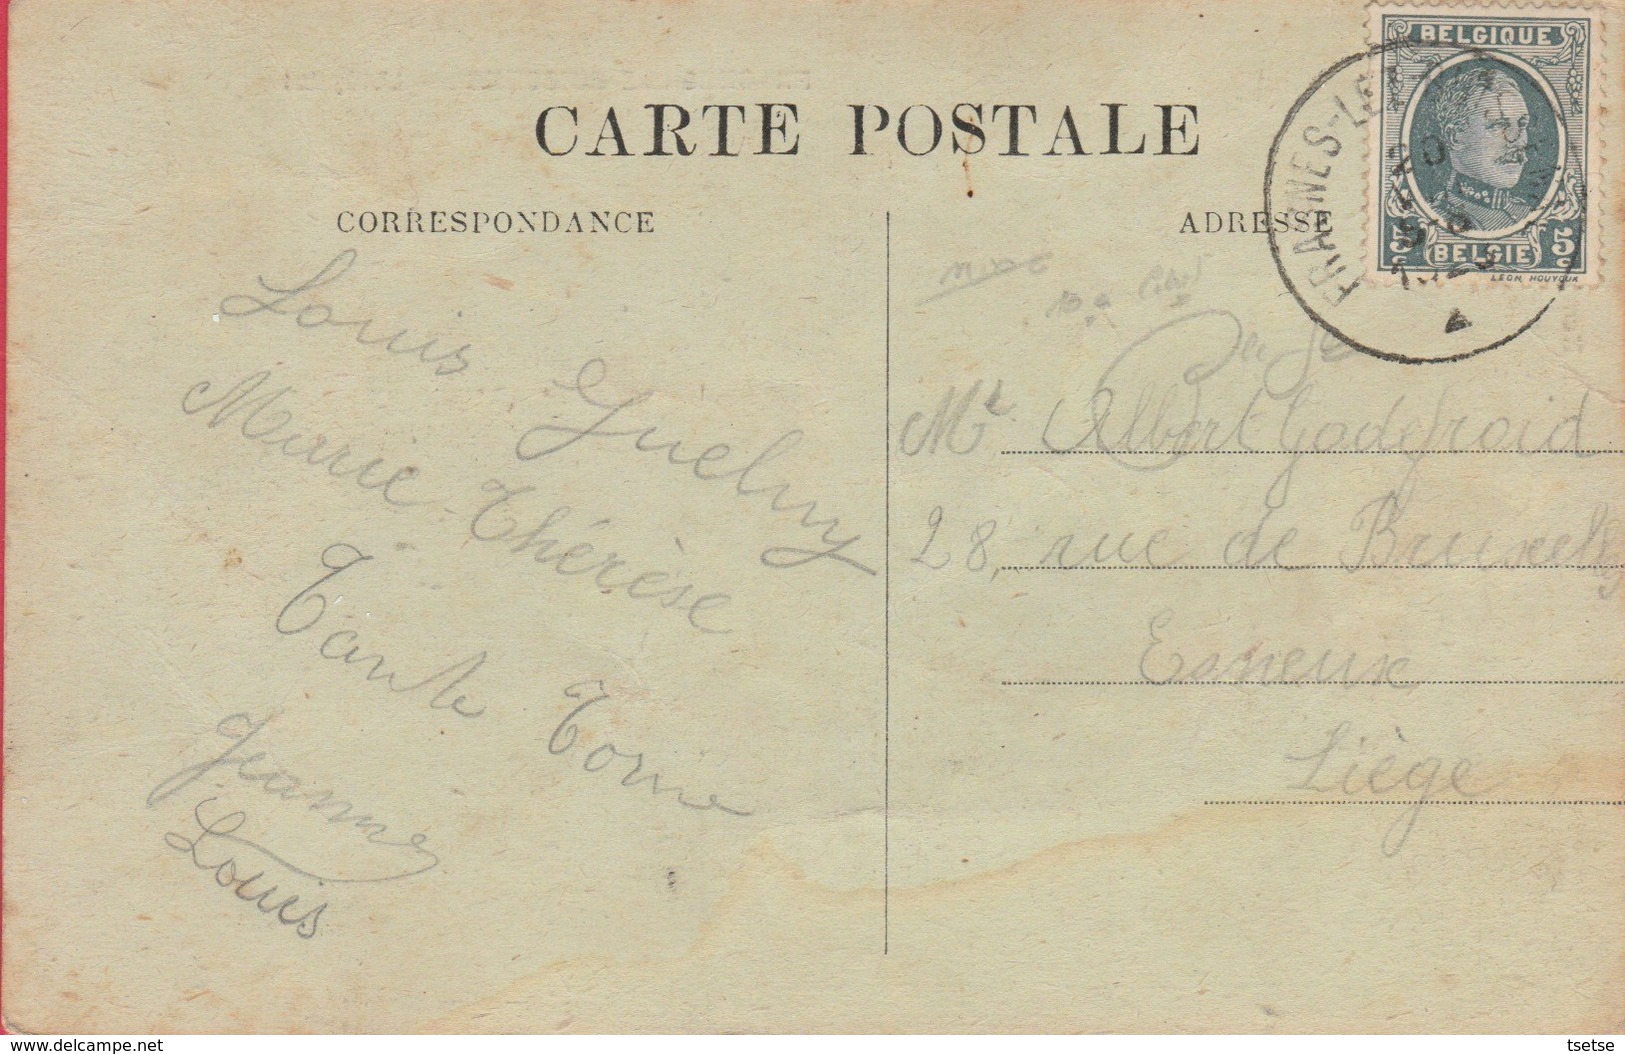 CARTE POSTALE
CORRESPONDANCE
ADRESSE
BELGIQUE
5c BELGIE 5c
LEON HOUYOUX
FRASNES-LEZ
Louis Guelny
Marie-Thérèse
Tante Torine
Jeanne
Louis
Mr Albert Godefroid
28, rue de Bruxelles
Esneux
Liège
tsetse
www.delcampe.net